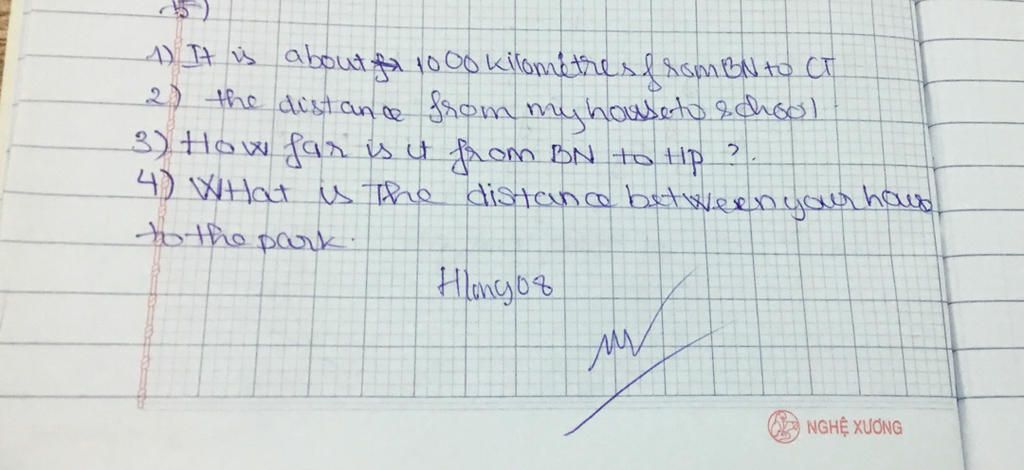 15)
1) It is about 1000 kilometres from BN to CT
2) the distance from my house to school
3) How far is it from BN to HP ?.
4) WHat is The distance between your hous
to the park.
Hlong08
NGHỆ XƯƠNG